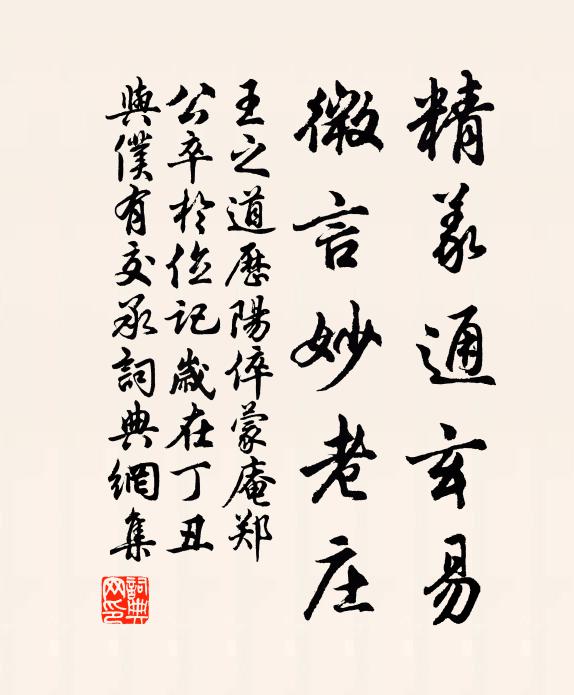 精義通玄易
微言妙老庄
王之道歷陽倅蒙庵郑
公卒於位記歲在丁丑
與僕有交承詞典網集
詞典网印